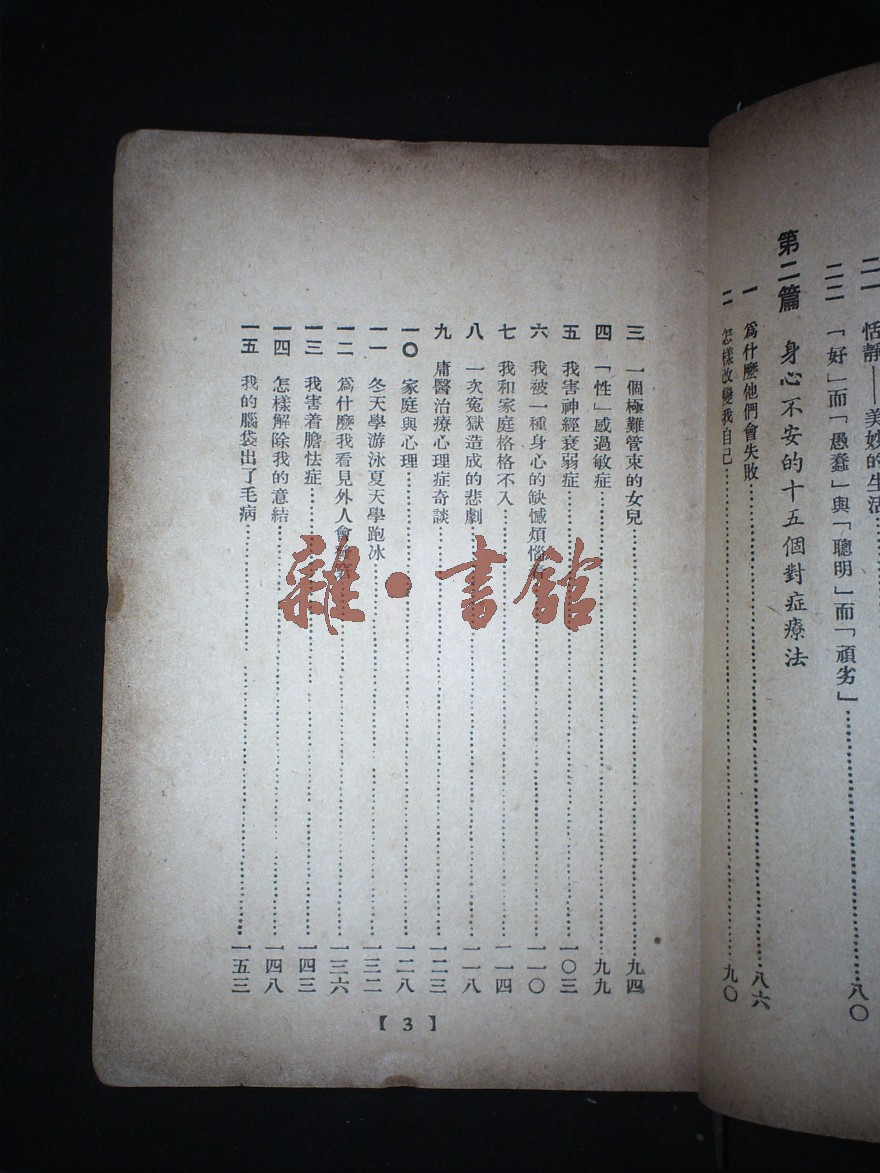 二一 恬靜——美妙的生活……
二二 「好」而「愚蠢」與「聰明」而「頑劣」……八〇
第二篇 身心不安的十五個對症療法
一 爲什麼他們會失敗……八六
二 怎樣改變我自己……九〇
三 一個極難管束的女兒……九四
四 「性」感過敏症……九九
五 我害神經衰弱症……一〇三
六 我被一種身心的缺憾煩惱……一一〇
七 我和家庭格格不入……一一四
八 一次冤獄造成的悲劇……一一八
九 庸醫治療心理症奇談……一二三
一〇 家庭與心理……一二八
一一 冬天學游泳夏天學跑冰……一三二
一二 爲什麼我看見外人會……一三六
一三 我害着膽怯症……一四三
一四 怎樣解除我的意結……一四八
一五 我的腦袋出了毛病……一五三
【3】
雜·書館